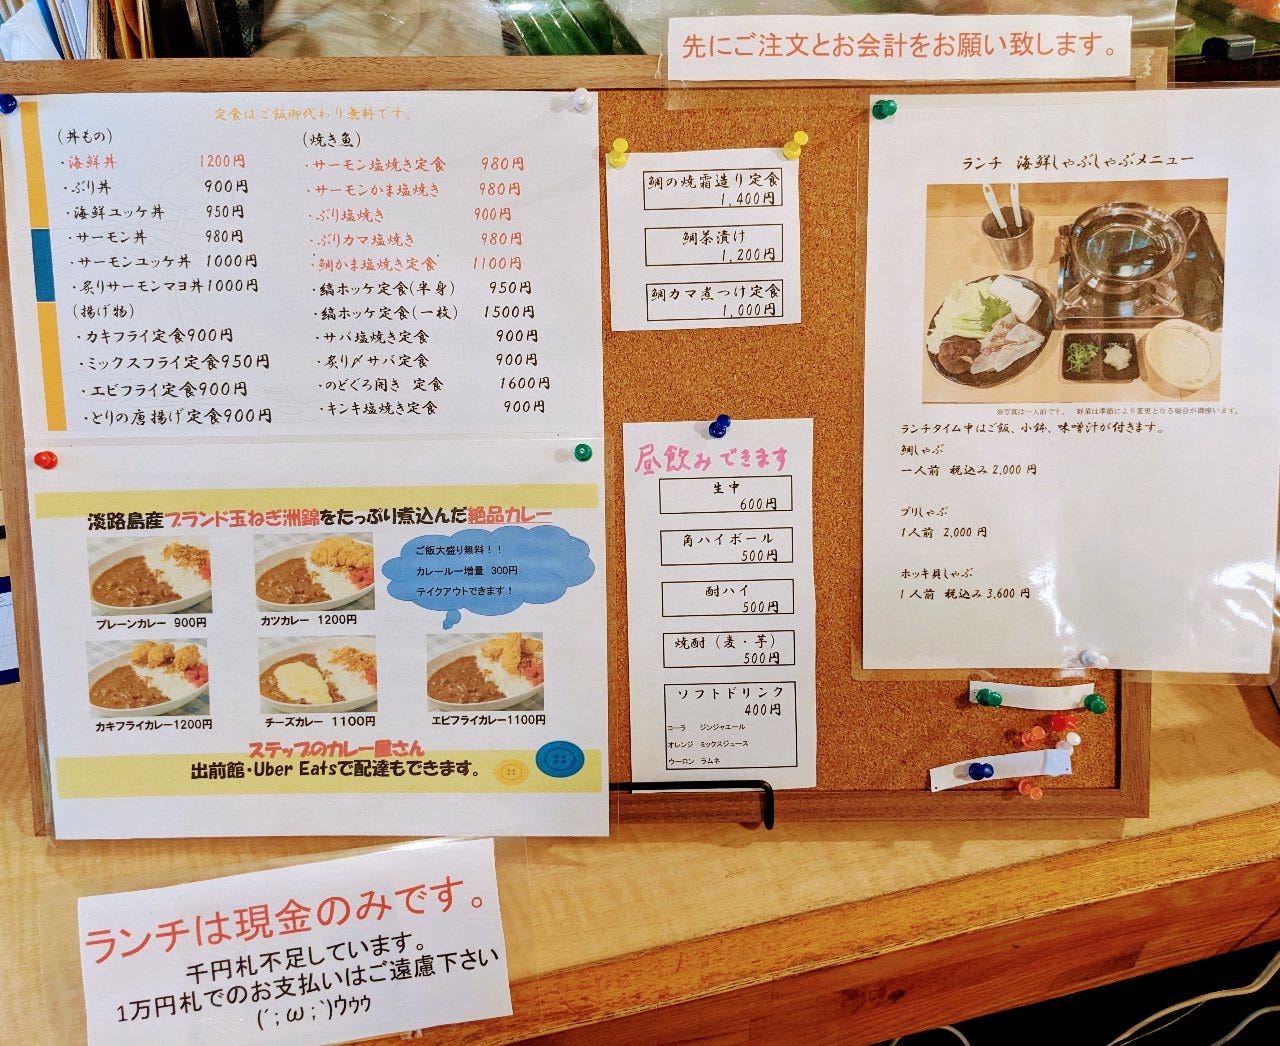 先にご注文とお会計をお願い致します。
定食はご飯御代わり無料です。
(丼もの)
・海鮮丼 1200円
・ぶり丼 900円
・海鮮ユッケ丼 950円
・サーモン丼 980円
・サーモンユッケ丼 1000円
・炙りサーモンマヨ丼1000円
(揚げ物)
・カキフライ定食900円
・ミックスフライ定食950円
・エビフライ定食900円
・とりの唐揚げ定食900円
(焼き魚)
・サーモン塩焼き定食 980円
・サーモンかま塩焼き 980円
・ぶり塩焼き 900円
・ぶりカマ塩焼き 980円
・鯛かま塩焼き定食 1100円
・縞ホッケ定食(半身) 950円
・縞ホッケ定食(一枚) 1500円
・サバ塩焼き定食 900円
・炙り〆サバ定食 900円
・のどぐろ開き 定食 1600円
・キンキ塩焼き定食 900円
鯛の焼霜造り定食
1,400円
鯛茶漬け
1,200円
鯛カマ煮つけ定食
1,000円
ランチ 海鮮しゃぶしゃぶメニュー
※写真は一人前です。 野菜は季節により変更となる場合が御座います。
ランチタイム中はご飯、小鉢、味噌汁が付きます。
鯛しゃぶ
一人前 税込み2,000円
ブリしゃぶ
1人前 2,000円
ホッキ貝しゃぶ
1人前 税込み3,600円
淡路島産ブランド玉ねぎ洲錦をたっぷり煮込んだ絶品カレー
ご飯大盛り無料！！
カレールー増量 300円
テイクアウトできます！
プレーンカレー 900円
カツカレー 1200円
カキフライカレー1200円
チーズカレー 1100円
エビフライカレー1100円
ステップのカレー屋さん
出前館・Uber Eatsで配達もできます。
昼飲みできます
生中
600円
角ハイボール
500円
酎ハイ
500円
焼酎（麦・芋）
500円
ソフトドリンク
400円
コーラ ジンジャエール
オレンジ ミックスジュース
ウーロン ラムネ
ランチは現金のみです。
千円札不足しています。
1万円札でのお支払いはご遠慮下さい
(´；ω；`)ウゥゥ